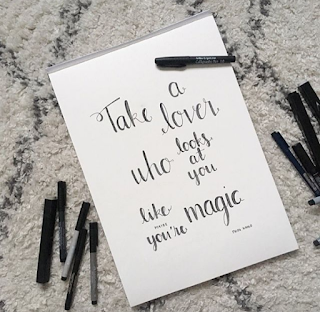 Take a
lover
who looks
at
you
like
maybe
you're magic.